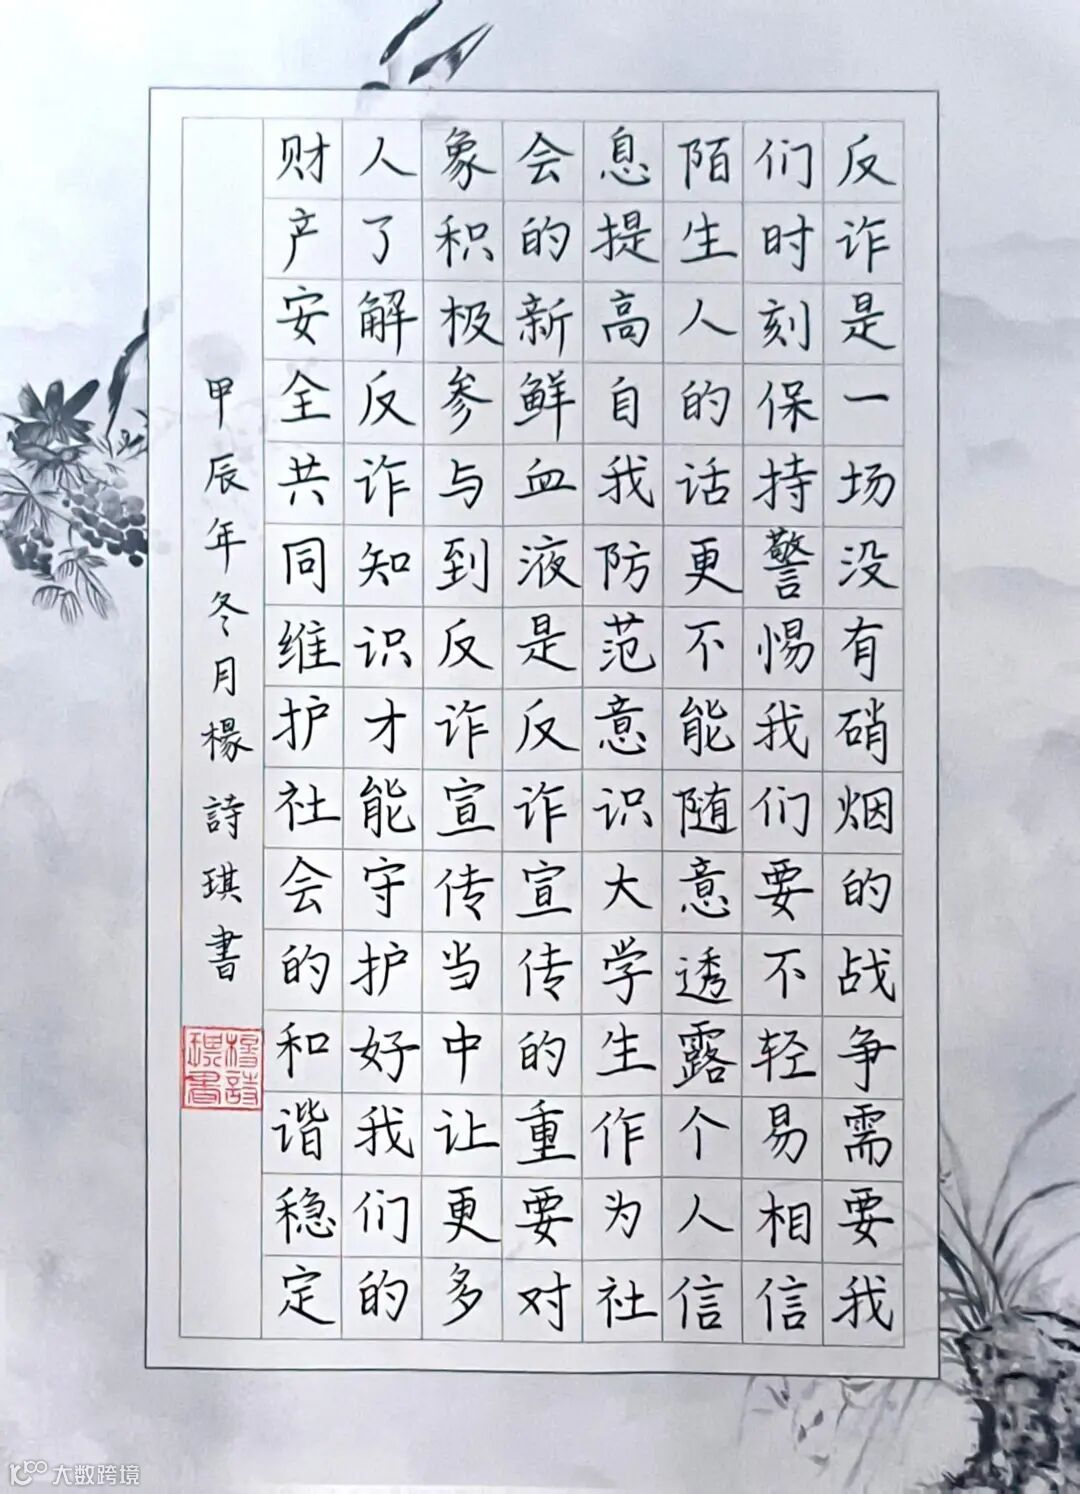 反诈是一场没有硝烟的战争需要我
们时刻保持警惕我们要不轻易相信
陌生人的话更不能随意透露个人信
息提高自我防范意识大学生作为社
会的新鲜血液是反诈宣传的重要对
象积极参与到反诈宣传当中让更多
人了解反诈知识才能守护好我们的
财产安全共同维护社会的和谐稳定
甲辰年冬月楊詩琪書
楊詩琪書
大数跨境